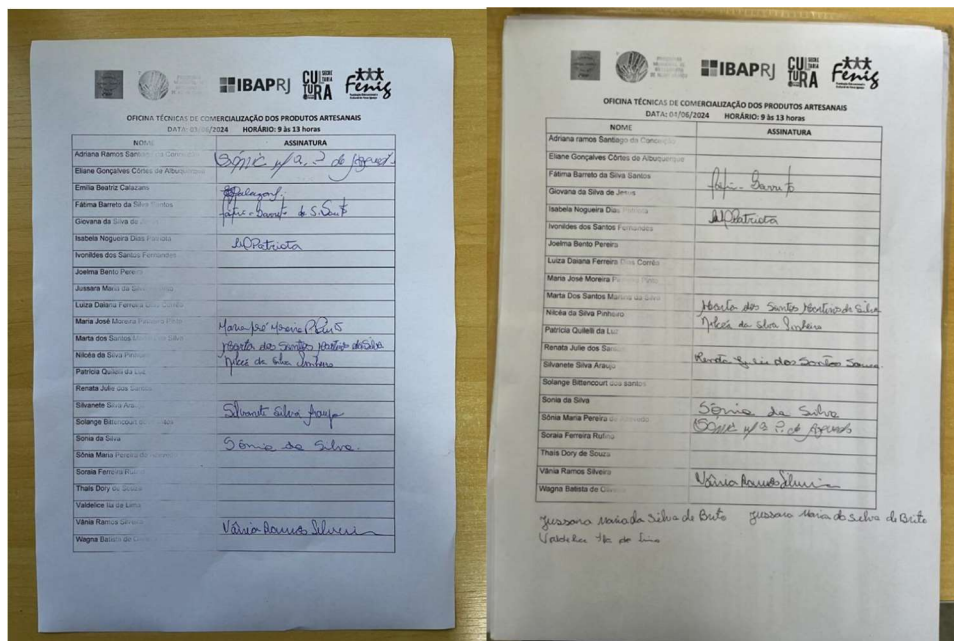 IBAPRJ
CULTURA
SECRETARIA
Fenig
OFICINA TÉCNICAS DE COMERCIALIZAÇÃO DOS PRODUTOS ARTESANAIS
DATA: /06/2024 HORÁRIO: 9 às 13 horas
NOME ASSINATURA
Adriana Ramos
Eliane Gonçalves Côrtes de Albuquerque
Emilia Beatriz Catazans
Fátima Barreto da Silva Santos
Giovana da Silva de
Isabela Nogueira Dias Patriota
Ivonildes dos Santos Fernandes
Joelma Bento Pereira
Jussara Maria da
Luiza Daiana Ferreira Dias Corrêa
Maria José Moreira
Marta dos Santos Martins da Silva Marta dos Santos Martins da Silva
Nilcéa da Silva Pinheiro Nilcéa da Silva Pinheiro
Patricia Quilelli da Luz
Renata Julie dos Santos
Silvanete Silva Silvanete Silva Araujo
Solange Bittencourt
Sonia da Silva Sônia da Silva
Sônia Maria Pereira
Soraia Ferreira
Thais Dory de Souza
Valdelice Ila de Lima
Vânia Ramos Silveira Vânia Ramos Silveira
Wagna Batista de
IBAPRJ
CULTURA
SECRETARIA
Fenig
OFICINA TÉCNICAS DE COMERCIALIZAÇÃO DOS PRODUTOS ARTESANAIS
DATA: /06/2024 HORÁRIO: 9 às 13 horas
NOME ASSINATURA
Adriana ramos Santiago da Conceição
Eliane Gonçalves Côrtes de Albuquerque
Fátima Barreto da Silva Santos
Giovana da Silva de Jesus
Isabela Nogueira Dias
Ivonildes dos Santos Fernandes
Joelma Bento Pereira
Luiza Daiana Ferreira Dias Corrêa
Maria José Moreira
Marta Dos Santos Martins da Silva Marta dos Santos Martins da Silva
Nilcéa da Silva Pinheiro Nilcéa da Silva Pinheiro
Patricia Quilelli da Luz
Renata Julie dos Santos
Silvanete Silva Araujo
Solange Bittencourt dos santos
Sonia da Silva Sônia da Silva
Sônia Maria Pereira de Azevedo
Soraia Ferreira Rufino
Thais Dory de Souza
Vânia Ramos Silveira Vânia Ramos Silveira
Wagna Batista de
Jussara Maria da Silva de Brito Jussara Maria da Silva de Brito
Valdelice Ila de Lima